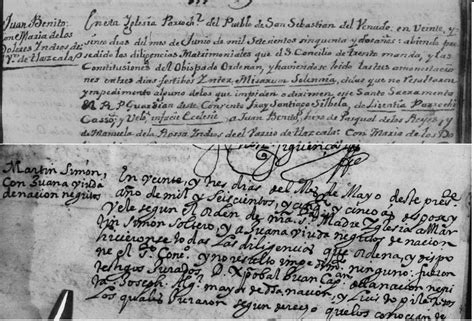 Juan Benito
con Maria de los
Dolores Indios del
Vº de Tlaxcala
En esta Iglesia Parochl. del Pueblo de San Sebastian del Venado, en Veinte, y
cinco dias del mes de Junio de mil setecientos cinquenta y dos años: abiendo pre-
sedido las diligencias Matrimoniales que el S. Concilio de trento manda, y las
Constituciones del Obispado Ordenan, y haviendose leido las tres amonestacio-
nes en tres dias festibos Inter Missarum Solemnia, de las que no Resulto
impedimento alguno de los que impiden o dirimen este Santo Sacramento
el R. P. Guardian deste Convento Fray Santiago Silbela, de Licentia Parochi
Casso, y Velo, infacie Eclesie a Juan Benito, hijo de Pasqual de los Reyes, y
de Manuela de la Rossa Indios del Varrio de tlaxcala: con Maria de los Do
Martin Simon,
Con Juana viuda
de nacion negros
En veinte, y tres dias del Mes de Mayo deste pres.
año de mil y Seiscientos, y cinco despose y
Vele segun el Orden de nra. Sª. Madre Iglesia a Mar
tin Simon Soltero, y a Juana viuda negros de nacion
hicieronse todas las diligencias que ordena, y dispo
ne el Sto. Conc. y no resulto impedimto. ninguno: fueron
testigos Jurados, D. Xpobal Juan
Joseph. Alg. mayor de la nacion, y Luis de
Los quales Juraron segun derecho que los conocian de